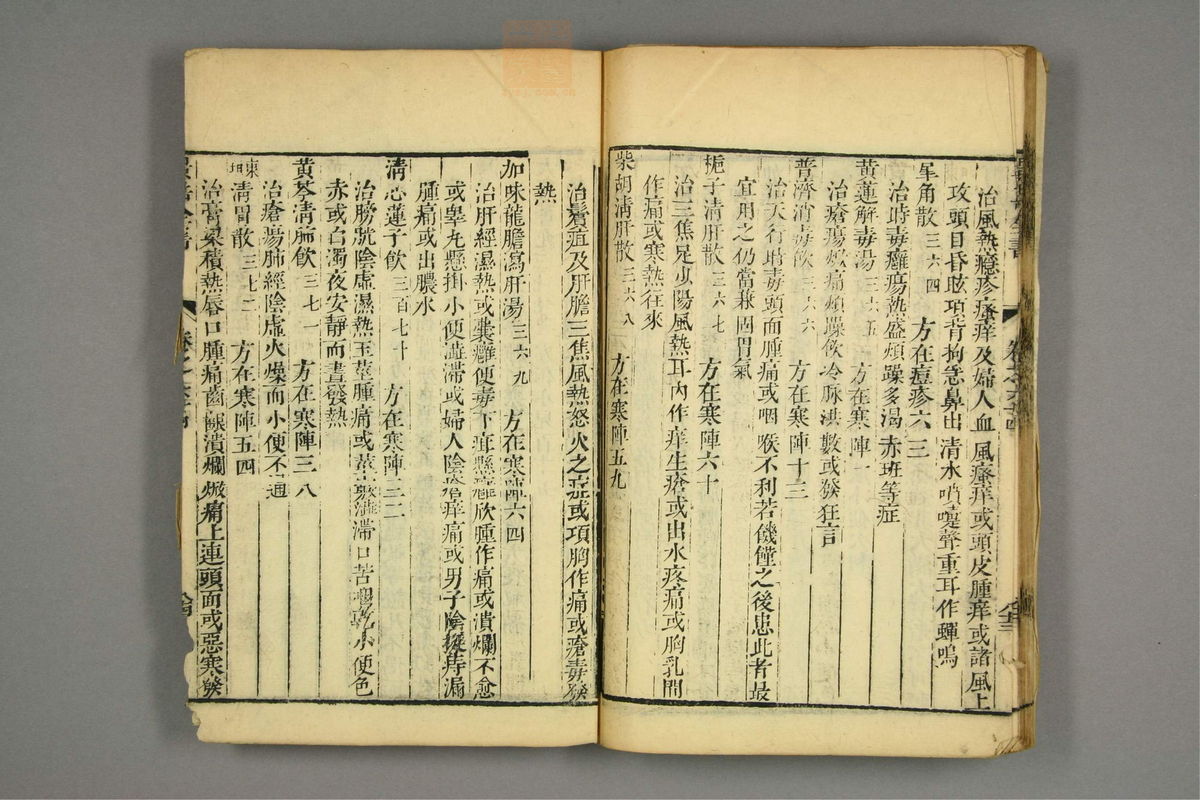 治風熱癮疹瘙痒及婦人血風瘙痒或頭皮腫痒或諸風上
攻頭目昏眩項背拘急鼻出清水噴嚏聲重耳作蟬鳴
犀角散三六四 方在痘疹六三
治時毒癰瘍熱盛煩躁多渴赤班等症
黄蓮解毒湯三六五 方在寒陣一
治瘡瘍焮痛煩躁飲冷脉洪數或發狂言
普濟消毒飲三六六 方在寒陣十三
治天行時毒頭面腫痛或咽喉不利若饑饉之後患此者最
宜用之仍當兼固胃氣
梔子清肝散三六七 方在寒陣六十
治三焦足少陽風熱耳内作痒生瘡或出水疼痛或胸乳間
作痛或寒熱往來
柴胡清肝散三六八 方在寒陣五九
治鬢疽及肝膽三焦風熱怒火之症或項胸作痛或瘡毒發
熱
加味龍膽瀉肝湯三六九 方在寒陣六四
治肝經濕熱或囊癰便毒下疳懸癰欣腫作痛或潰爛不愈
或睾丸懸掛小便澁滞或婦人陰瘡痒痛或男子陰挺痔漏
腫痛或出膿水
清心蓮子飲三百七十 方在寒陣三二
治膀胱陰虚濕熱玉莖腫痛或莖竅澁滞口苦咽乾小便色
赤或白濁夜安靜而晝發熱
黄芩清肺飲三七一 方在寒陣三八
治瘡瘍肺經陰虚火燥而小便不通
東垣清胃散三七二 方在寒陣五四
治膏粱積熱唇口腫痛齒齦潰爛焮痛上連頭面或惡寒發